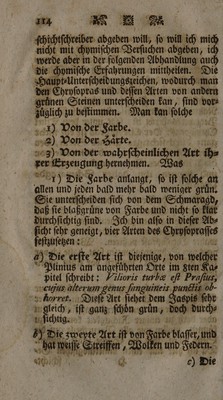 114
schichtschreiber abgeben will, so will ich mich
nicht mit chymischen Versuchen abgeben, ich
werde aber in der folgenden Abhandlung auch
die chymische Erfahrungen mittheilen. Die
Haupt-Unterscheidungszeichen, wodurch man
den Chrysopras und dessen Arten von andern
grünen Steinen unterscheiden kan, sind vor-
züglich zu bestimmen. Man kan solche
1) Von der Farbe.
2) Von der Härte.
3) Von der wahrscheinlichen Art ih-
rer Erzeugung hernehmen. Was
1) Die Farbe anlangt, so ist solche an
allen und jeden bald mehr bald weniger grün.
Sie unterscheiden sich von dem Schmaragd,
daß sie blaßgrüne von Farbe und nicht so klar
durchsichtig sind. Ich bin also in dieser Ab-
sicht sehr geneigt, vier Arten des Chrysoprasses
festzusetzen:
a) Die erste Art ist diejenige, von welcher
Plinius am angeführten Orte im 8ten Ka-
pitel schreibt: Vilioris turbæ est Prasius,
cujus alterum genus sanguineis punctis ob-
horret. Diese Art siehet dem Jaspis sehr
gleich, ist ganz schön grün, doch durch-
sichtig.
b) Die zweyte Art ist von Farbe blasser, und
hat weisse Streiffen, Wolken und Federn.
c) Die